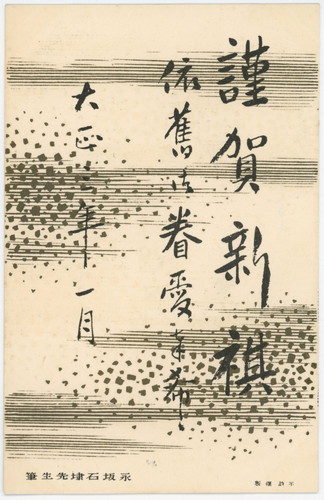 謹賀新禧
依舊御眷愛を希ふ
大正三年一月
永坂石埭先生筆
不許復製